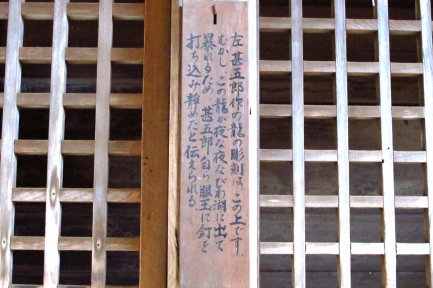 左甚五郎作の龍の彫刻はこの上です。
むかし この龍が夜な夜なびわ湖に出て
暴れるため 甚五郎自ら眼玉に釘を
打ち込み静めたと伝えられる